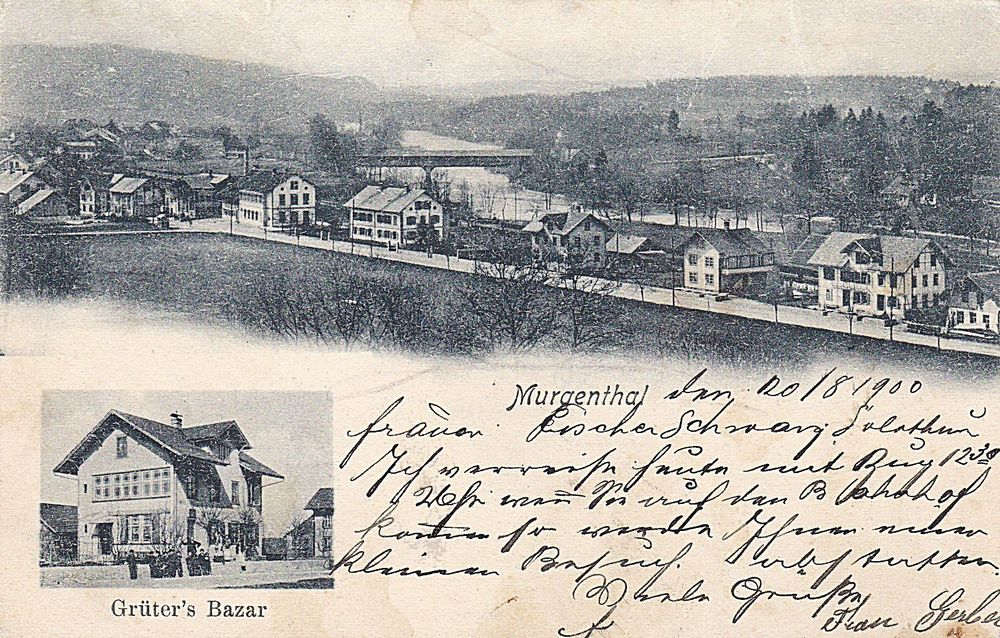 Murgenthal den 20/8 1900
Frauen Fischer Schwarz Solothurn
Ich verreise heute mit Zug 12 38
Uhr wenn Sie auf den Bahnhof
kommen so werde Ihnen einen
kleinen Besuch abstatten.
Viele Grüße
Frau Gerber
Grüter's Bazar